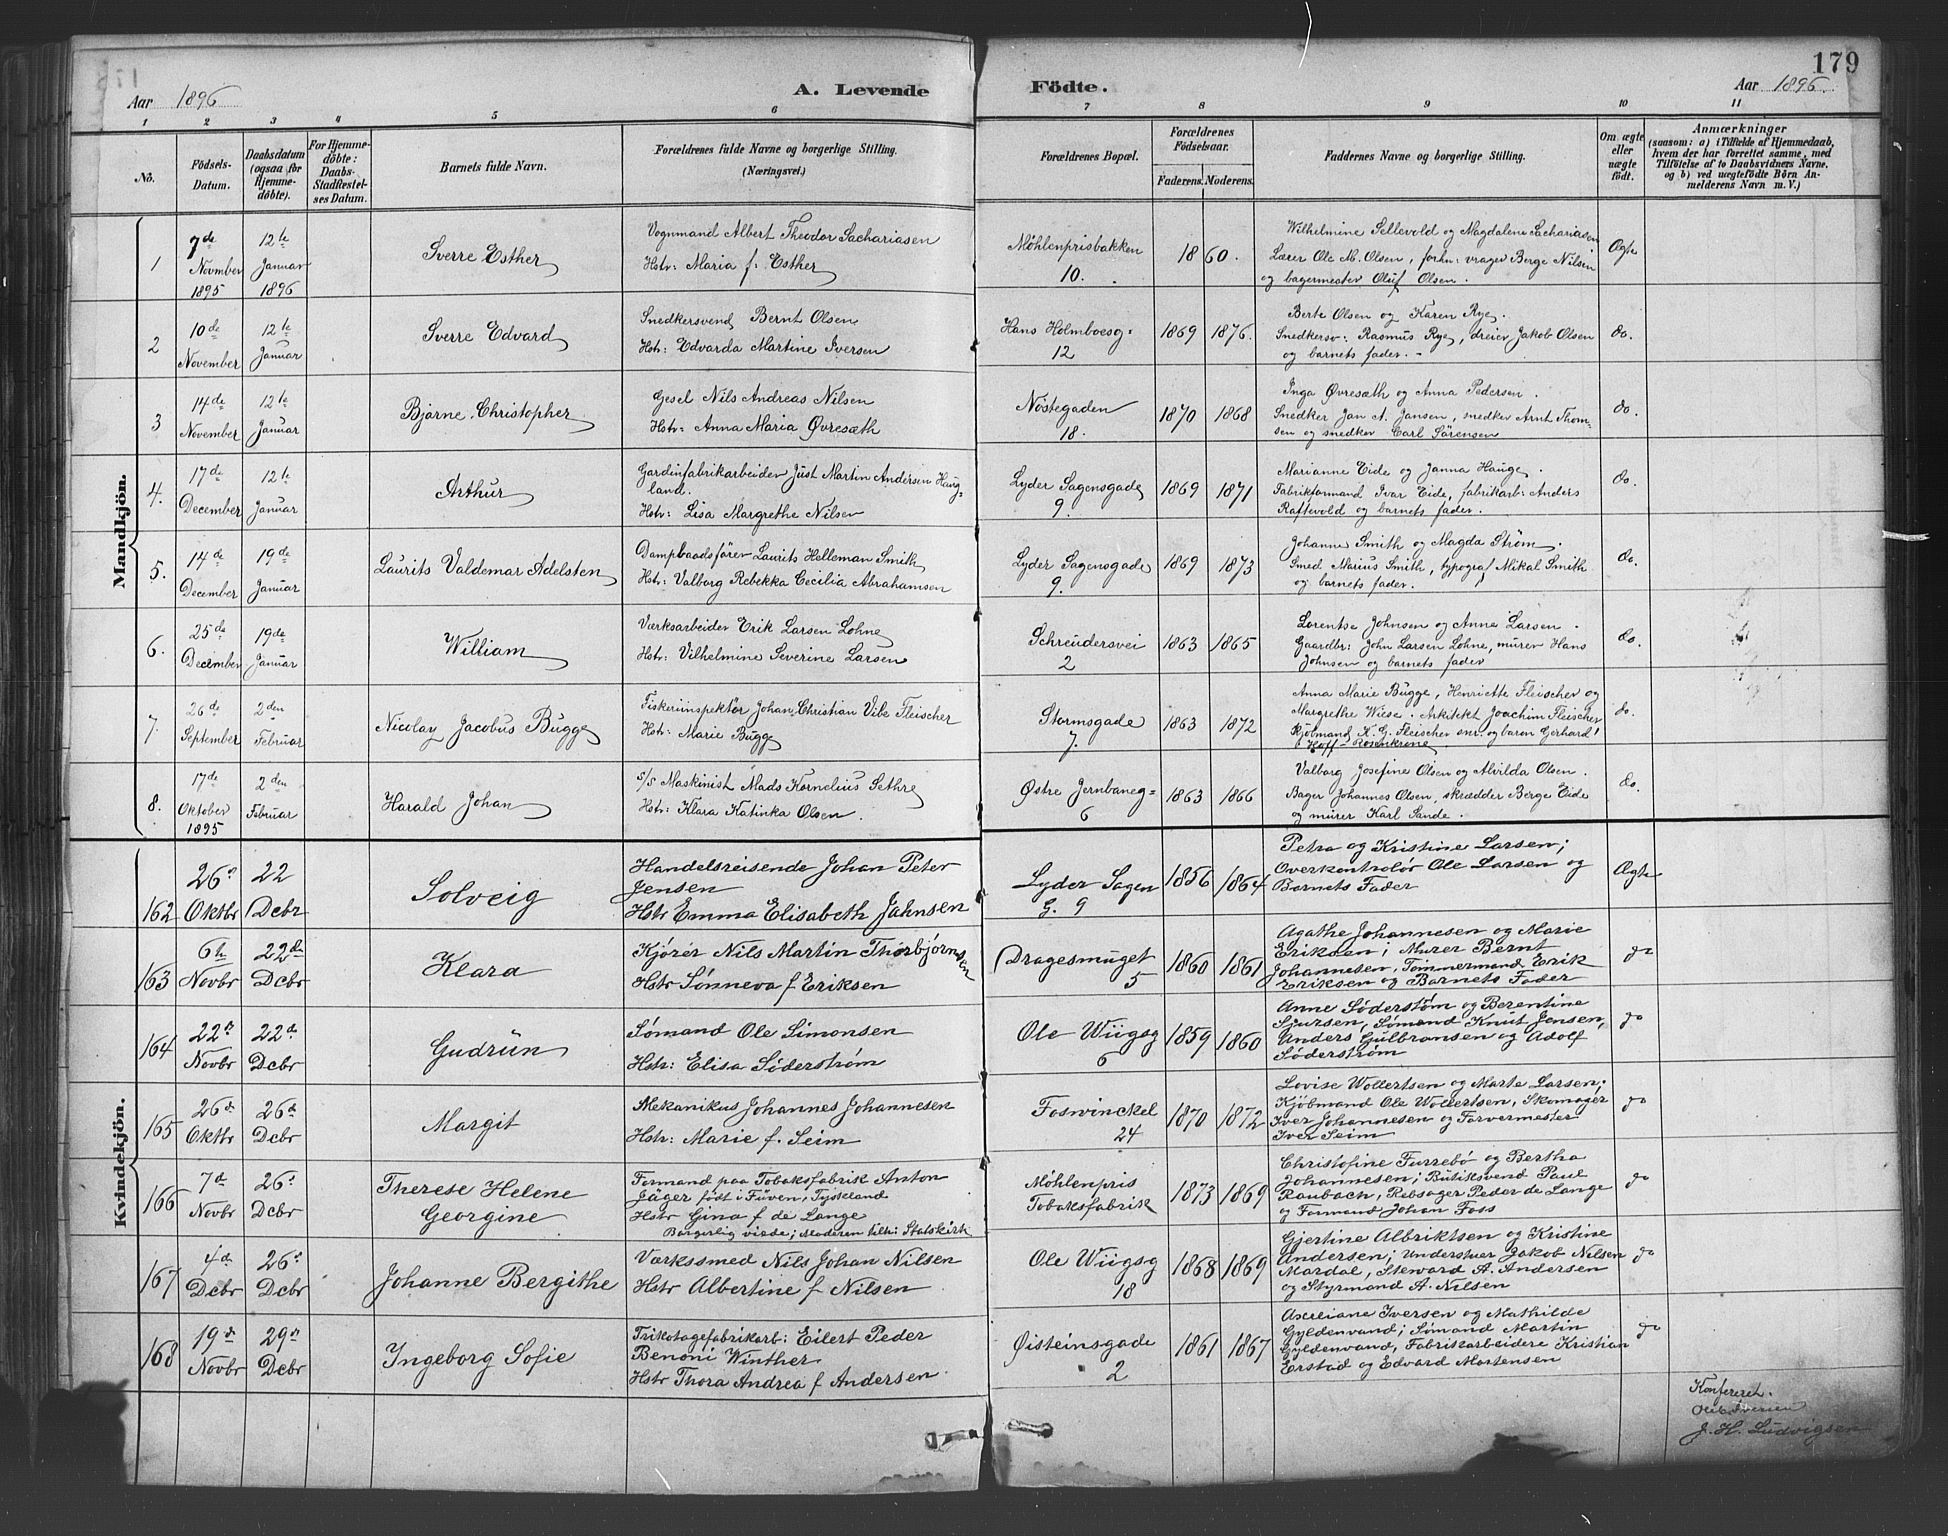 179
Aar 1896
A. Levende Födte.
Aar 1896.
1 2 3 4 5 6 7 8 9 10 11
No.
Födsels-Datum.
Daabsdatum (ogsaa for Hjemme-döbte).
For Hjemme-döbte: Daabs-Stadfæstel-ses Datum.
Barnets fulde Navn.
Forældrenes fulde Navne og borgerlige Stilling.
(Næringsvei.)
Forældrenes Bopæl.
Forældrenes Födselsaar.
Faderens. Moderens.
Faddernes Navne og borgerlige Stilling.
Om ægte eller uægte födt.
Anmærkninger
(saasom: a) i Tilfælde af Hjemmedaab,
hvem der har forrettet samme, med
Tilföielse af to Daabsvidners Navne.
og b) ved uægtefödte Börn An-
melderens Navn m. V.)
Mandkjön.
1 7de Novmber 1895 12te Januar 1896 Sverre Esther
Vognmand Albert Theodor Sachariasen
Hstr: Maria f. Esther
Möhlenprisbakken 10. 1860.
Wilhelmine Sellevold og Magdalene Sachariasen
Lærer Ole M. Olsen, forhn: vrager Berge Nilsen
og bagermester Oluf Olsen.
Ægte
2 10de November 12te Januar Sverre Edvard
Snedkersvend Bernt Olsen
Hstr: Edvarda Martine Iversen
Hans Holmboesg: 12 1869 1876.
Berte Olsen og Karen Rye,
Snedkersv: Rasmus Rye, dreier Jakob Olsen
og barnets fader.
do.
3 14de November 12te Januar Bjarne Christopher
Gesel Nils Andreas Nilsen
Hstr: Anna Maria Øvresæth
Nöstegaden 18. 1870 1868
Inga Øvresæth og Anna Pedersen.
Snedker Jan A. Jansen, snedker Arnt Thom-
sen og snedker Carl Sörensen
do.
4. 17de December 12te Januar Arthur
Gardinfabrikarbeider Just Martin Andersen Haug-
land.
Hstr: Lisa Margrethe Nilsen
Lyder Sagensgade 9. 1869 1871
Marianne Eide og Janna Hauge.
Fabrikformand Ivar Eide, fabrikarb: Anders
Raftevold og barnets fader.
do.
5. 14de December 19de Januar Laurits Valdemar Adelsten
Dampbaadsförer Laurits Helleman Smith
Hstr: Valborg Rebekka Cecilia Abrahamsen
Lyder Sagensgade 9. 1869 1873
Johanne Smith og Magda Ström.
Smed Marius Smith, typograf Mikal Smith
og barnets fader.
do.
6. 25de December 19de Januar William
Værksarbeider Erik Larsen Lohne
Hstr: Vilhelmine Severine Larsen
Schreudersvei 2 1863 1865
Lorentse Johnsen og Anne Larsen.
Gaardbr: John Larsen Lohne, murer Hans
Johnsen og barnets fader
do.
7. 26de September 2den Februar Nicolay Jacobus Bugge
Fiskeriinspektør Johan Christian Vibe Fleischer
Hstr: Marie Bugge
Stormsgade 7. 1863 1872
Anna Marie Bugge, Henriette Fleischer og
Margrethe Wiese. Arkitekt Joachim Fleischer
Kjöbmand K. G. Fleischer snr. og baron Gerhard
Hoff-Rosenkrone
do.
8. 17de Oktober 1895 2den Februar Harald Johan
S/S Maskinist Mads Kornelius Sethre
Hstr: Klara Katinka Olsen.
Østre Jernbaneg= 6 1863 1866
Valborg Josefine Olsen og Alvilda Olsen.
Bager Johannes Olsen, skrædder Berge Eide
og murer Karl Sande.
do.
Kvindekjön.
162 26d Oktbr 22 Dcbr Solveig
Handelsreisende Johan Peter
Jensen
Hstr Emma Elisabeth Jahnsen
Lyder Sagen G. 9 1856 1864
Petra og Kristine Larsen;
Overkontrolør Ole Larsen og
Barnets Fader
Ægte
163 6te Novbr 22de Dcbr Klara
Kjører Nils Martin Thorbjörnsen
Hstr Sønneva f Eriksen
Dragesmuget 5 1860 1861
Agathe Johannesen og Marie
Eriksen; Murer Bernt
Johannesen, Tömmermand Erik
Eriksen og Barnets Fader
do
164 22de Novbr 22d Dcbr Gudrun
Sømand Ole Simonsen
Hstr: Elisa Söderstrøm
Ole Wiigsg 6 1859 1860
Anne Söderstøm og Berentine
Sjursen, Sømand Knut Jensen,
Anders Gulbransen og Adolf
Söderstrøm
do
165 26d Oktbr 26d Dcbr Margit
Mekanikus Johannes Johannesen
Hstr: Marie f. Seim
Foswinckel 24 1870 1872
Lovise Wollertsen og Marte Larsen;
Kjöbmand Ole Wollertsen, Skomager
Iver Johannesen og Farvermester
Iver Seim
do
166 7d Novbr 26d Dcbr Therese Helene Georgine
Formand paa Tobaksfabrik Anton
Jäger födt i Füven, Tyskland
Hstr Gina f de Lange
Borgerlig viede; Moderen tilh: Statskirk
Möhlenpris Tobaksfabrik 1873 1869
Christofine Furrebö og Bertha
Johannesen; Butiksvend Paul
Raubach, Rebslager Peder de Lange
og Formand Johan Foss
do
167 4d Dcbr 26d Dcbr Johanne Bergithe
Værkssmed Nils Johan Nilsen
Hstr Albertine f Nilsen
Ole Wiigsg 18 1868 1869
Gjertine Albriktsen og Kristine
Andersen; Understuer Jakob Nilsen
Mardal, Steward A. Andersen
og Styrmand A. Nilsen
do
168 19d Novbr 29d Dcbr Ingeborg Sofie
Trikotagefabrikarb: Eilert Peder
Benoni Winther
Hstr Thora Andrea f Andersen
Øisteinsgade 2 1861 1867
Axeliane Iversen og Mathilde
Gyldenvand; Sømand Martin
Gyldenvand, Fabrikarbeidere Kristian
Erstad og Edvard Mortensen
do
Konfereret.
J. H. Ludvigsen